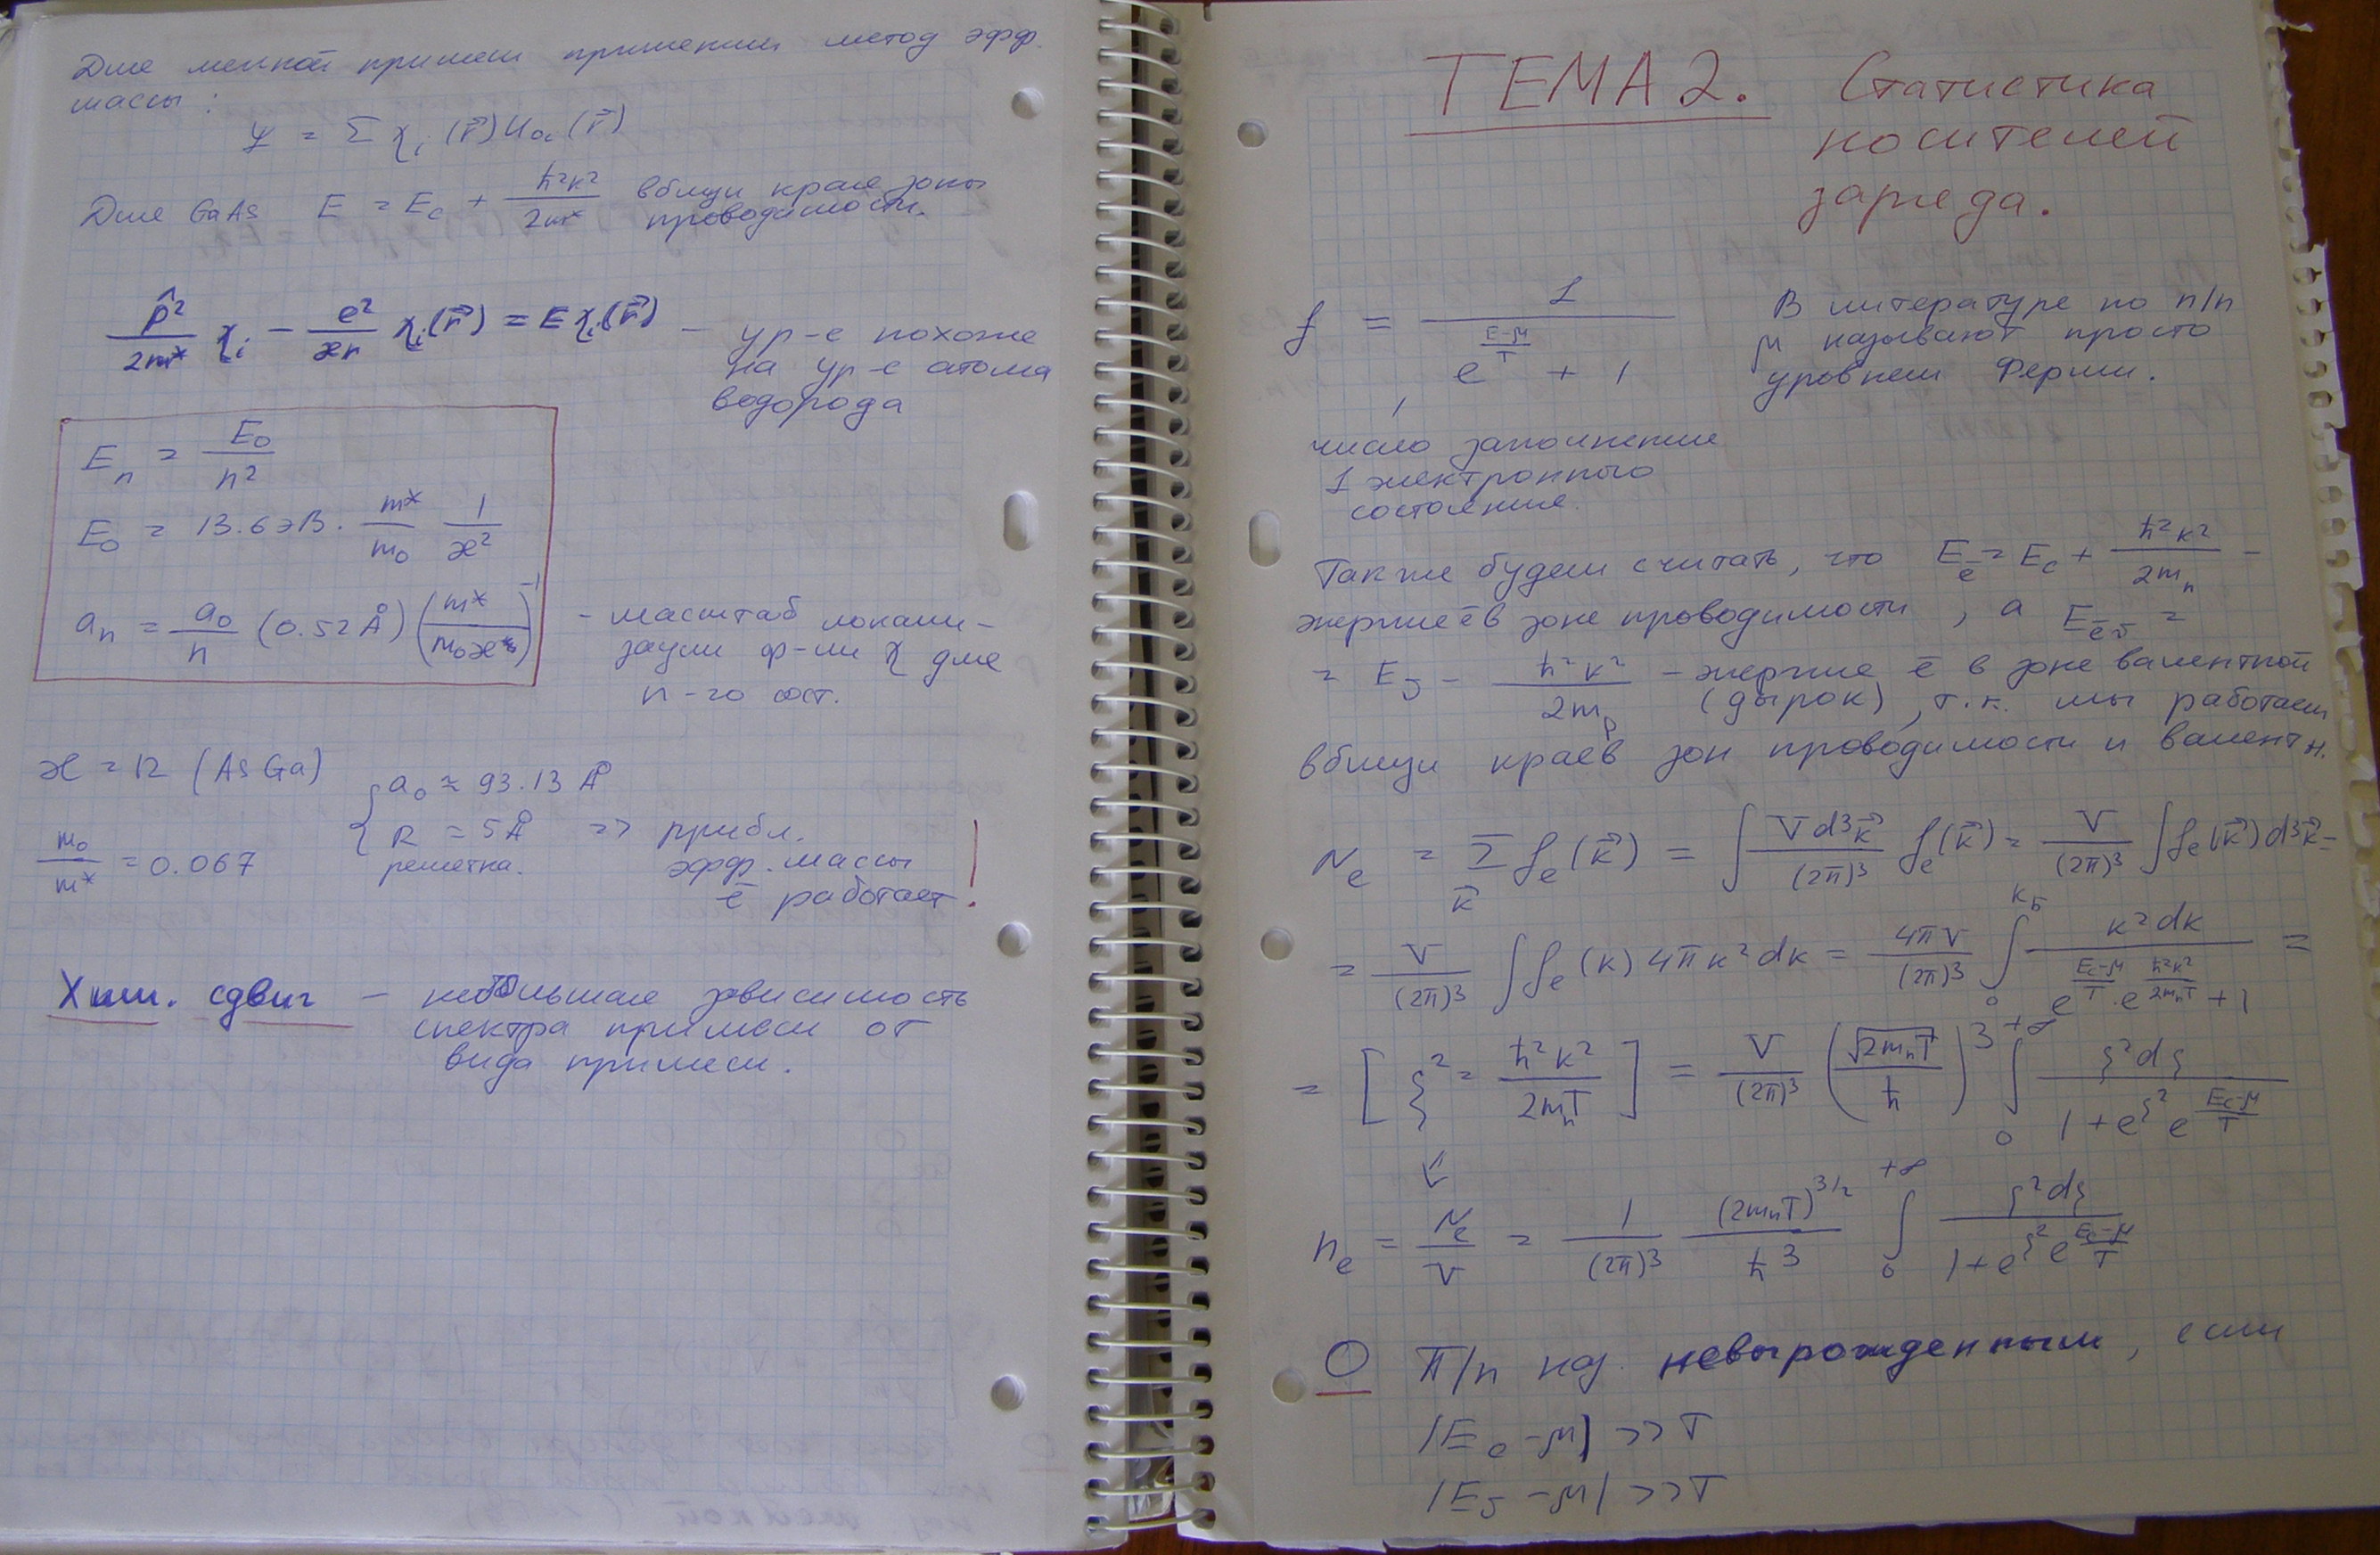 Для мелкой примеси применим метод эфф.
массы:
Ψ = Σ χᵢ(r⃗) u₀ᵢ(r⃗)
Для GaAs E = E_c + ħ²k²/2m* вблизи края зоны
проводимости.
p̂²/2m* χᵢ − e²/ær χᵢ(r⃗) = E χᵢ(r⃗) – ур-е похоже
на ур-е атома
водорода
E_n = E₀/n²
E₀ = 13.6 эВ · m*/m₀ 1/æ²
a_n = a₀/n (0.52 Å) (m*/m₀æ)⁻¹ - масштаб локали-
зации ф-ии χ для
n-го сост.
æ = 12 (AsGa)
{ a₀ ≈ 93.13 Å
R решетка. = 5 Å => прибл.
m₀/m* = 0.067
эфф. массы
ē работает!
Хим. сдвиг – небольшая зависимость
спектра примеси от
вида примеси.
ТЕМА 2. Статистика
носителей
заряда.
f = 1/(e^((E−μ)/T) + 1)
В литературе по п/п
μ называют просто
уровнем Ферми.
число заполнения
1 электронного
состояния.
Также будем считать, что E_ē = E_c + ħ²k²/2m_n –
энергия ē в зоне проводимости, а E_ēv =
= E_v − ħ²k²/2m_p – энергия ē в зоне валентной
(дырок), т.к. мы работаем
вблизи краёв зон проводимости и валентн.
N_e = Σ_k⃗ f_e(k⃗) = ∫ V d³k⃗/(2π)³ f_e(k⃗) = V/(2π)³ ∫ f_e(k⃗) d³k⃗ =
= V/(2π)³ ∫ f_e(k) 4πk²dk = 4πV/(2π)³ ∫₀^(k_Б) k²dk/(e^((E_c−μ)/T) · e^(ħ²k²/2m_nT) + 1) =
= [ξ² = ħ²k²/2m_nT] = V/(2π)³ (√2m_nT/ħ)³ ∫₀^(+∞) ξ²dξ/(1 + e^ξ² e^((E_c−μ)/T))
⇓
n_e = N_e/V = 1/(2π)³ (2m_nT)^(3/2)/ħ³ ∫₀^(+∞) ξ²dξ/(1 + e^ξ² e^((E_c−μ)/T))
О П/п наз. невырожденным, если
|E_c − μ| >> T
|E_v − μ| >> T